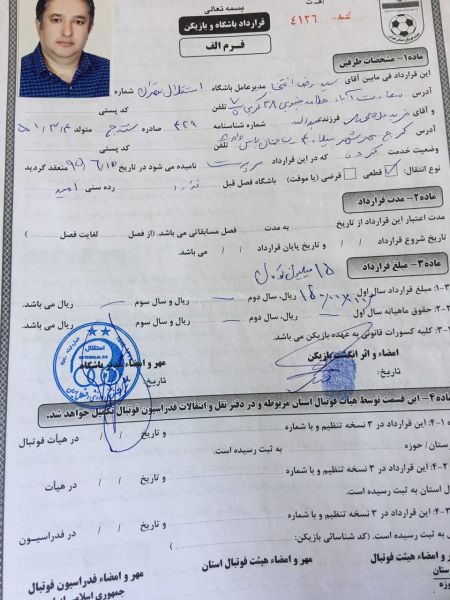 بسمه تعالی
شماره: ۴۱۲۶
قرارداد باشگاه و بازیکن
فرم الف
ماده۱- مشخصات طرفین
این قرارداد فی مابین آقای سید رضا افتخاری مدیرعامل باشگاه استقلال تهران شماره
آدرس سعادت آباد علامه جنوبی ۳۸ غربی پ ۷ تلفن کد پستی
و آقای فرزند شماره شناسنامه ۴۲۹ صادره سنندج متولد ۵۱/۳/۴
آدرس کرج تلفن کد پستی
وضعیت خدمت کرده که در این قرارداد سرپرست نامیده می شود در تاریخ ۹۶/۶/۱۵ منعقد گردید
نوع انتقال: قطعی قرضی (یا موقت) باشگاه فصل قبل رده سنی امید
ماده۲- مدت قرارداد
مدت اعتبار این قرارداد از تاریخ به مدت فصل مسابقاتی می باشد. (از فصل لغایت فصل )
تاریخ شروع قرارداد / / و تاریخ پایان قرارداد / / می باشد.
ماده۳- مبلغ قرارداد
۱۵ میلیون تومان
۳-۱- مبلغ قرارداد سال اول ریال، سال دوم ریال و سال سوم ریال می باشد.
۳-۲- حقوق ماهیانه سال اول ریال، سال دوم ریال و سال سوم ریال می باشد.
کلیه کسورات قانونی به عهده بازیکن می باشد.
امضاء و اثر انگشت بازیکن
مهر و امضاء مدیر باشگاه
تاریخ:
تاریخ:
استقلال
ESTEGHLAL F.C
ماده۴- این قسمت توسط هیأت فوتبال استان مربوطه و در دفتر نقل و انتقالات فدراسیون فوتبال تکمیل خواهد شد.
۴-۱: این قرارداد در ۳ نسخه تنظیم و با شماره و تاریخ / / در هیأت فوتبال
استان/ حوزه به ثبت رسیده است.
۴-۲: این قرارداد در ۳ نسخه تنظیم و با شماره و تاریخ / / در هیأت
فوتبال استان به ثبت رسیده است.
۴-۳: این قرارداد در ۳ نسخه تنظیم و با شماره و تاریخ / / در فدراسیون
فوتبال به ثبت رسیده است. (کد شناسائی بازیکن: )
مهر و امضاء هیئت فوتبال
مهر و امضاء هیئت فوتبال استان
مهر و امضاء فدراسیون فوتبال
استان
حوزه
جمهوری اسلامی ایران